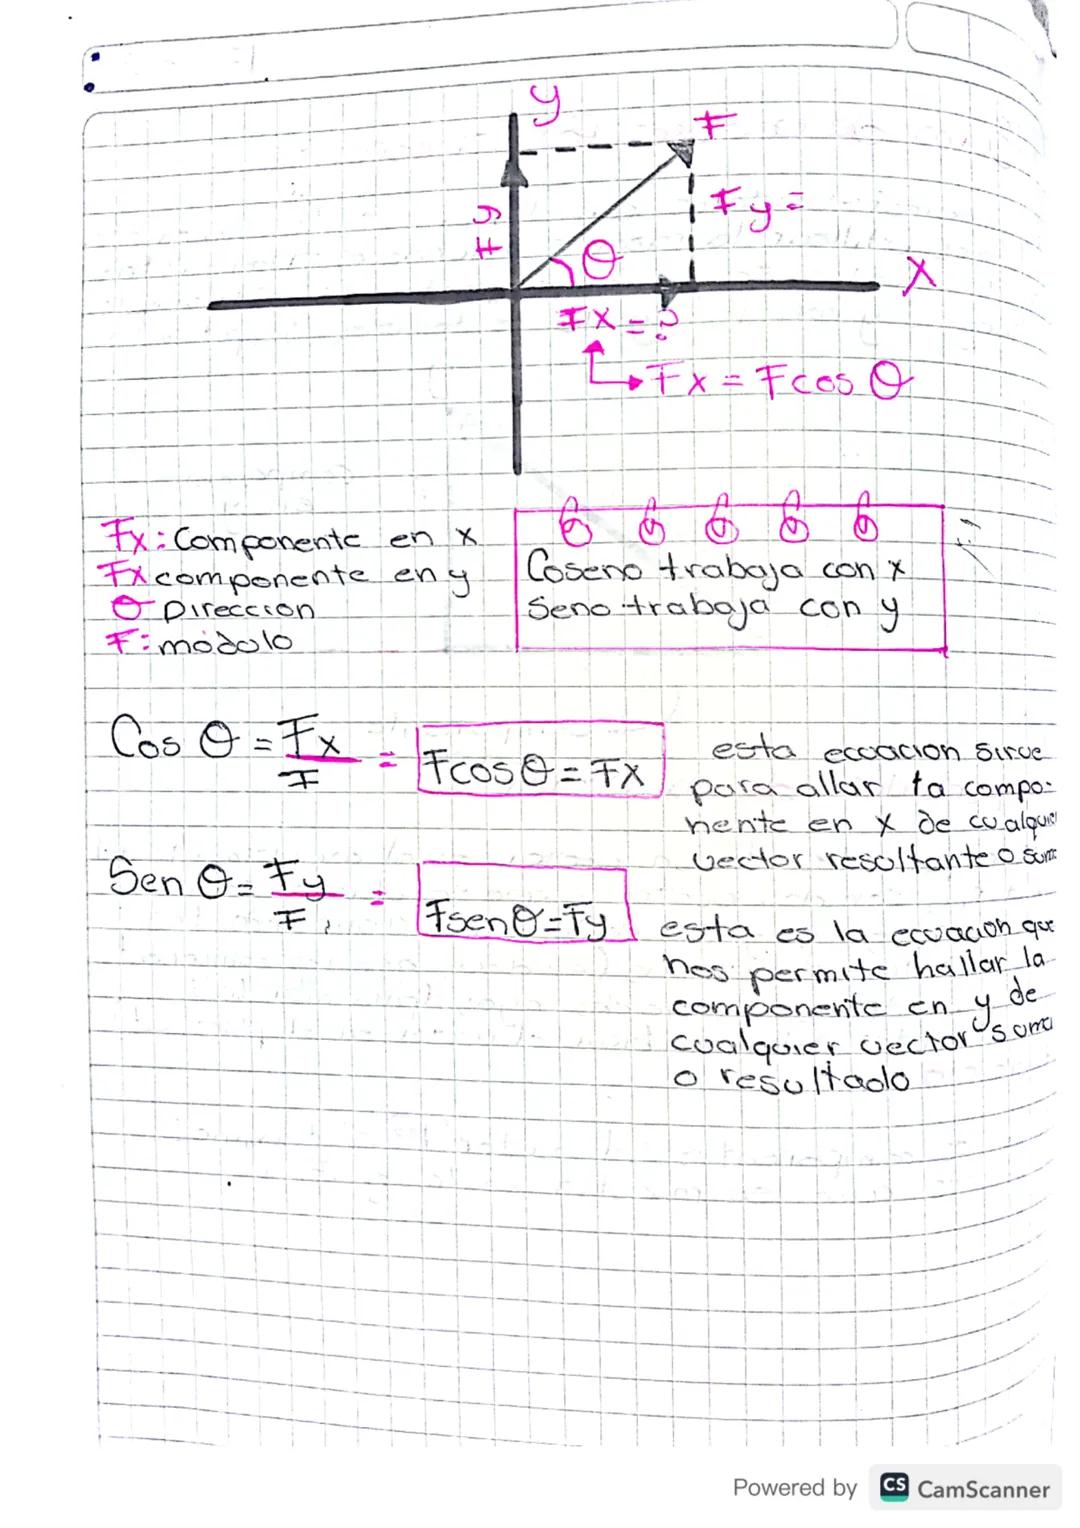 y
F
Fy
Fy =
θ
X
Fx = ?
Fx = Fcos θ
Fx: Componente en x
Fx componente en y
θ Direccion
F: modolo
Coseno trabaja con x
Seno trabaja con y
Cos θ = Fx/F = Fcosθ = Fx
esta ecuacion sirve
para allar la compo-
nente en x de cualquier
vector resultante o suma
Sen θ = Fy/F = Fsenθ = Fy
esta es la ecuacion que
nos permite hallar la
componente en y de
cualquier vector suma
o resultado
Powered by CS CamScanner